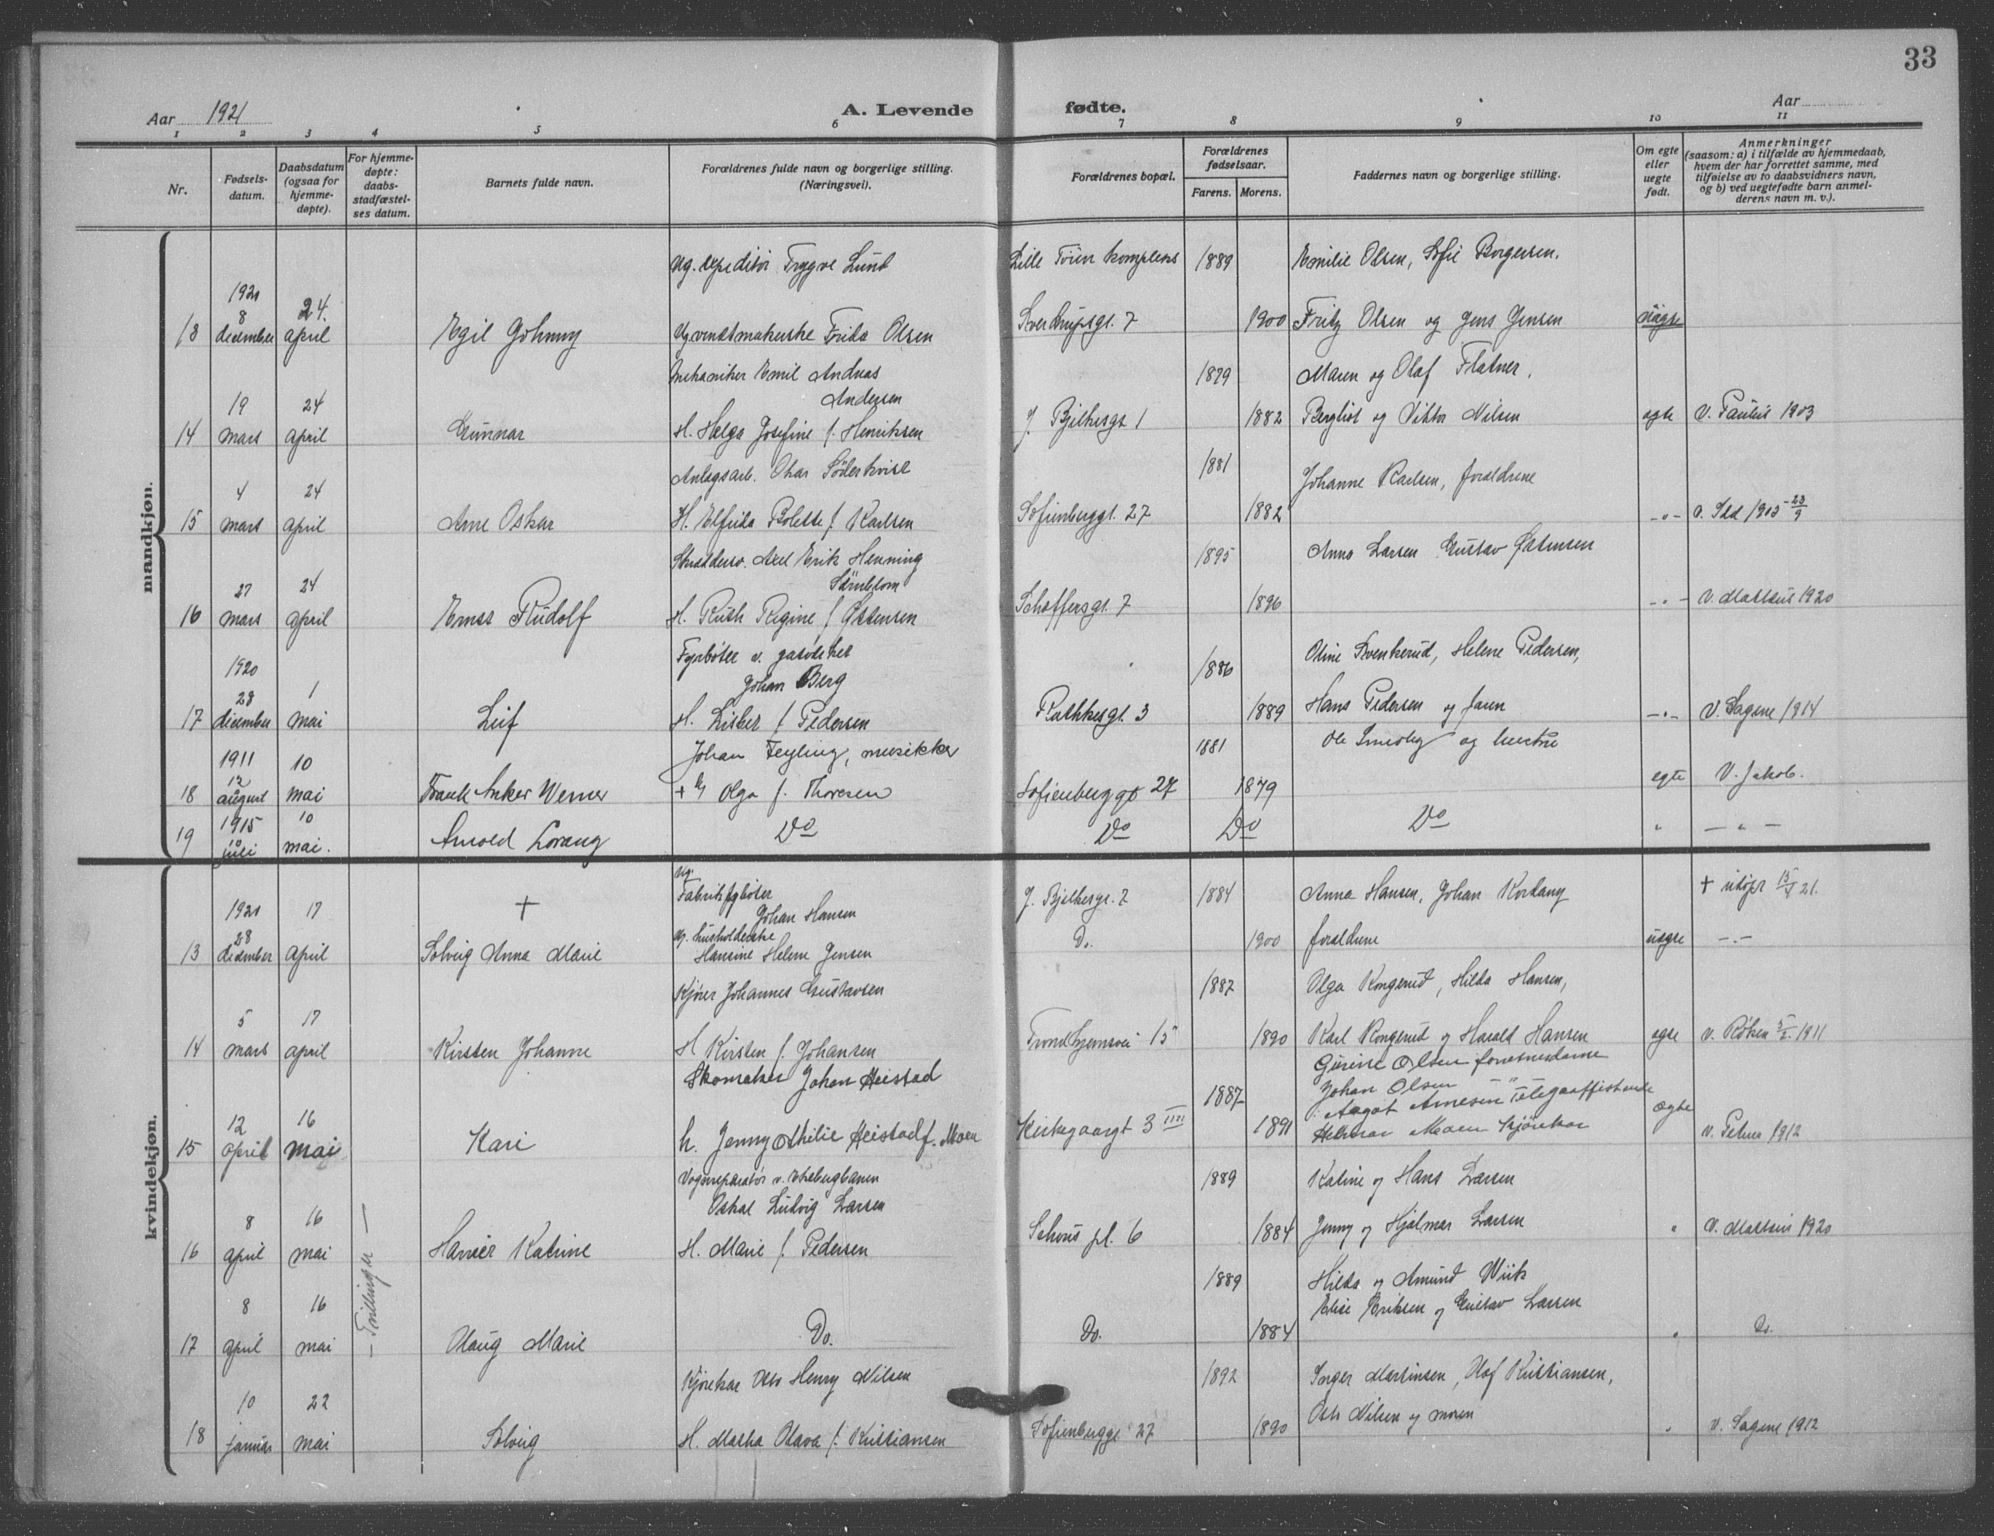 33
Aar 1921
A. Levende fødte.
Aar
1 2 3 4 5 6 7 8 9 10 11
Nr.
Fødsels-
datum.
Daabsdatum
(ogsaa for
hjemme-
døpte).
For hjemme-
døpte:
daabs-
stadfæstel-
ses datum.
Barnets fulde navn.
Forældrenes fulde navn og borgerlige stilling.
(Næringsvei).
Forældrenes bopæl.
Forældrenes
fødselsaar.
Farens. Morens.
Faddernes navn og borgerlige stilling.
Om egte
eller
uegte
født.
Anmerkninger
(saasom: a) i tilfælde av hjemmedaab,
hvem der har forrettet samme, med
tilføielse av to daabsvidners navn,
og b) ved uegtefødte barn anmel-
derens navn m. v.).
mandkjøn.
Ug. expeditør Trygve Lund Lille Tøien kompleks 1889 Emilie Olsen, Sofie Borgersen.
1920
8 24.
13 december april Egil Johnny Frida Olsen Sverdrupsgt. 7 1900 Fritz Olsen og Jens Jensen uægte
Mekaniker Emil Andreas 1879 Maren og Olaf Flatner.
Andersen
19 24
14 mars april Gunnar H. Helga Josefine f. Henriksen J. Bjelkesgt 1 1882 Bergliot og Viktor Nilsen egte v. Paulus 1903
Anlegsarb. 1881 Johanne Karlsen, forældrene
4 24
15 mars april Arne Oskar H. Elfrida Bolette f. Karlsen Sofienberggt. 27 1882 -"- 1913 23/9
Axel Erik Henning 1895 Anna Larsen Gustav Østensen
27 24
16 mars april Rudolf H. Ruth Regine f. Østensen Schæffersgt. 7 1896 -"- v. Matteus 1920
Fyrbøter v. gasverket
Johan Berg 1886 Oline Svenkerud, Helene Pedersen,
1920
28 1
17 december mai Leif H. f. Pedersen Rathkesgt. 3 1889 Hans Pedersen og faren -"- v. Sagene 1914
Johan Feyling, musikker 1881 Ole Smedby og hustru
1911 10
12
18 august mai Frank Anker Werner + H Olga f. Thoresen Sofienberggt 27 1879 egte V. Jakob.
1915 10
19 10 juli mai. Arnold Lorang Do Do Do Do " - " -
kvindekjøn.
Ug.
Fabrikfyrbøter
Johan Hansen J. Bjelkesgt. 7 1884 Anna Hansen, Johan + utdøpt 15/4 21.
1920 17 +
28 Ug. husholderske
13 december april Solveig Anna Marie Hansine Helene Jensen Do. 1900 forældrene uegte -"-
Kjører Johannes Gustavsen 1887 Olga Kongerud, Hilda Hansen,
5 17
14 mars april Kirsten Johanne H Kirsten f. Johansen Trondhjemsvei 15 1890 Karl Kongerud og Harald Hansen egte v. Røken 5/2 1911
Skomaker Johan Heistad 1887 Gurine Olsen
Johan Olsen
12 16 Aagot Arnesen
15 april mai Kari h. Jenny Othilie Heistad f. Moen Kirkegaargt 3 IIII 1891 Moen kjørekar ægte v. Petrus 1912
Vognreparatør v. Ekebergbanen 1889 Katrine og Hans Larsen
Oskar Ludvig Larsen
8 16
16 april mai Katrine H. Marie f. Pedersen Schous pl. 6 1884 Jenny og Hjalmar Larsen " v. Matteus 1920
- Tvillinger -
1889 Hilda og Amund Wiik
8 16 Elise Eriksen og Gustav Larsen
17 april mai Olaug Marie Do. Do. 1884 " Do.
Kjørekar Otto Henry Nilsen 1892 Inger Martinsen, Olaf Kristiansen,
10 22
18 januar mai Solveig H. Martha Olava f. Kristiansen Sofienberggt 27 1890 Otto Nilsen og moren " v. Sagene 1912